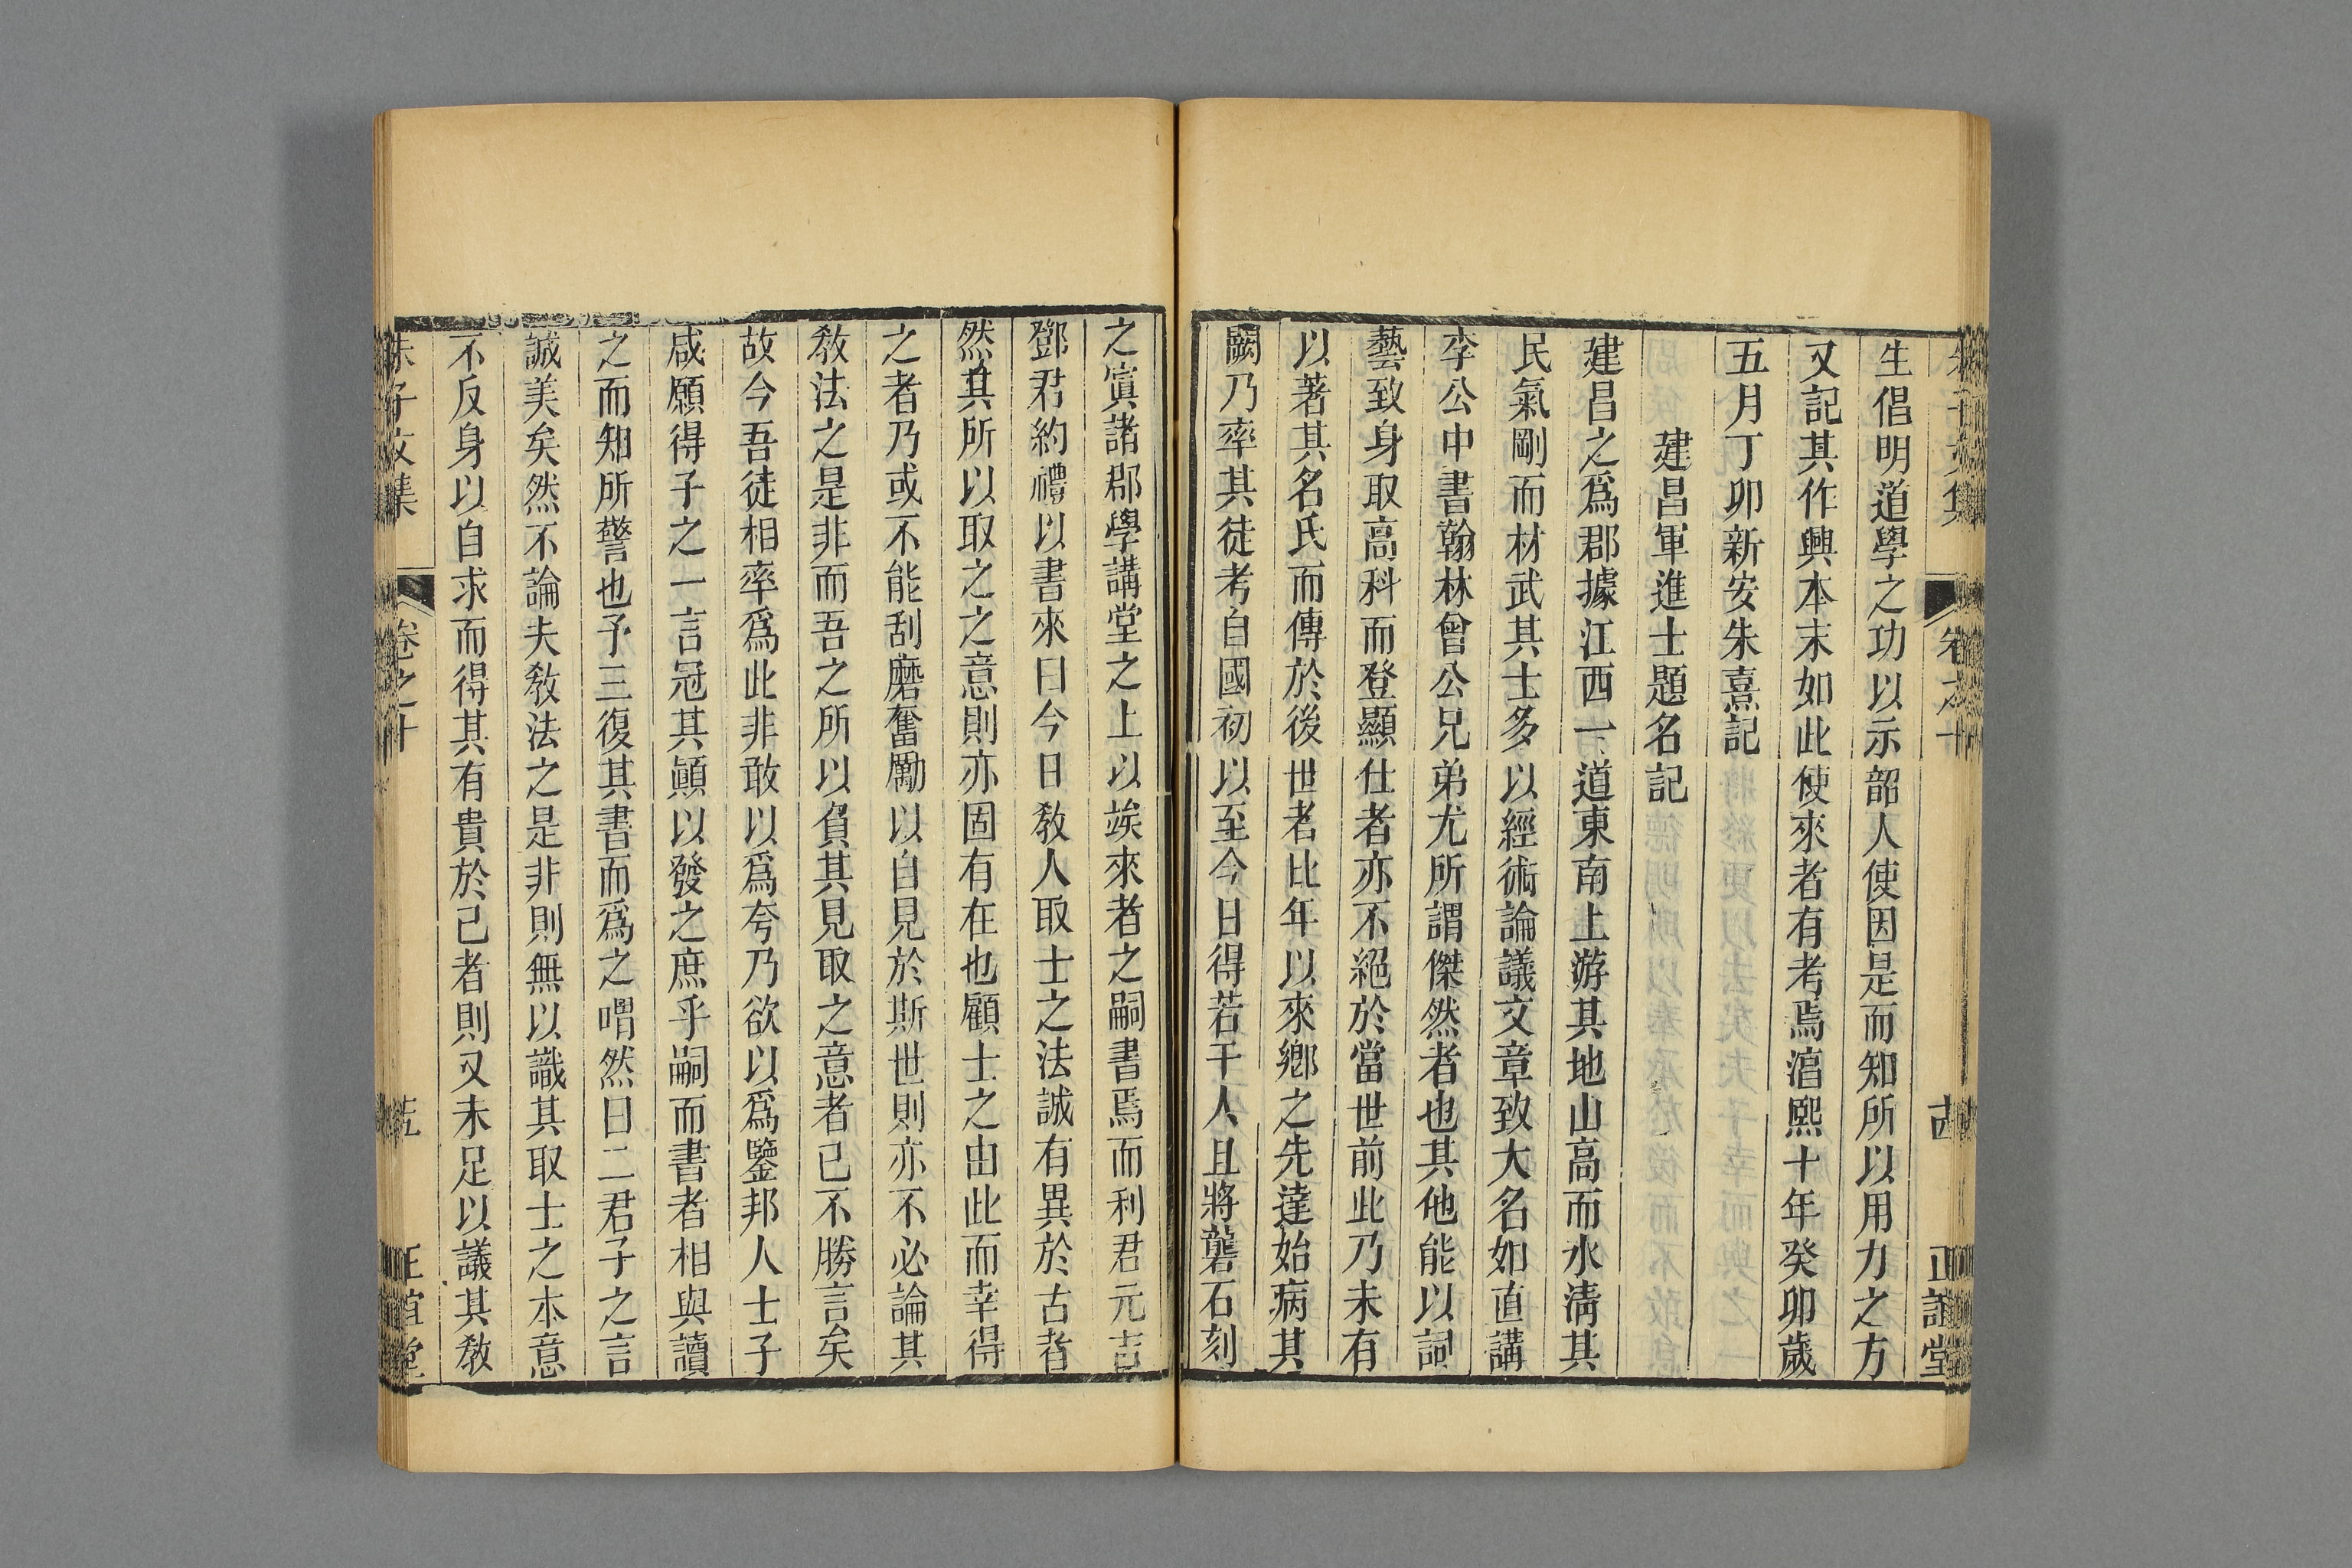 生倡明道學之功以示韶人使因是而知所以用力之方
又記其作興本末如此使來者有考焉㴑熙十年癸卯歲
五月丁卯新安朱熹記
建昌軍進士題名記
建昌之爲郡據江西一道東南上游其地山高而水淸其
民氣剛而材武其士多以經術論議文章致大名如直講
李公中書翰林曾公兄弟尤所謂傑然者也其他能以詞
藝致身取高科而登顯仕者亦不絕於當世前此乃未有
以著其名氏而傳於後世者比年以來鄉之先達始病其
闕乃率其徒考自國初以至今日得若干人且將礱石刻
之寘諸郡學講堂之上以竢來者之嗣書焉而利君元吉
鄧君約禮以書來曰今日敎人取士之法誠有異於古者
然其所以取之之意則亦固有在也顧士之由此而幸得
之者乃或不能刮磨奮勵以自見於斯世則亦不必論其
敎法之是非而吾之所以負其見取之意者已不勝言矣
故今吾徒相率爲此非敢以爲夸乃欲以爲鑒邦人士子
咸願得子之一言冠其顚以發之庶乎嗣而書者相與讀
之而知所警也予三復其書而爲之喟然曰二君子之言
誠美矣然不論夫敎法之是非則無以識其取士之本意
不反身以自求而得其有貴於己者則又未足以議其敎
朱子文集
卷之十
正誼堂